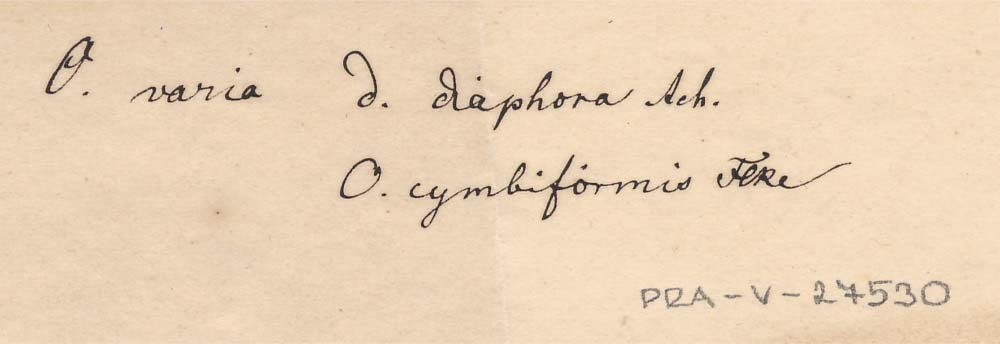 O. varia d. diaphora Ach.
O. cymbiformis Flke
PRA-V-27530